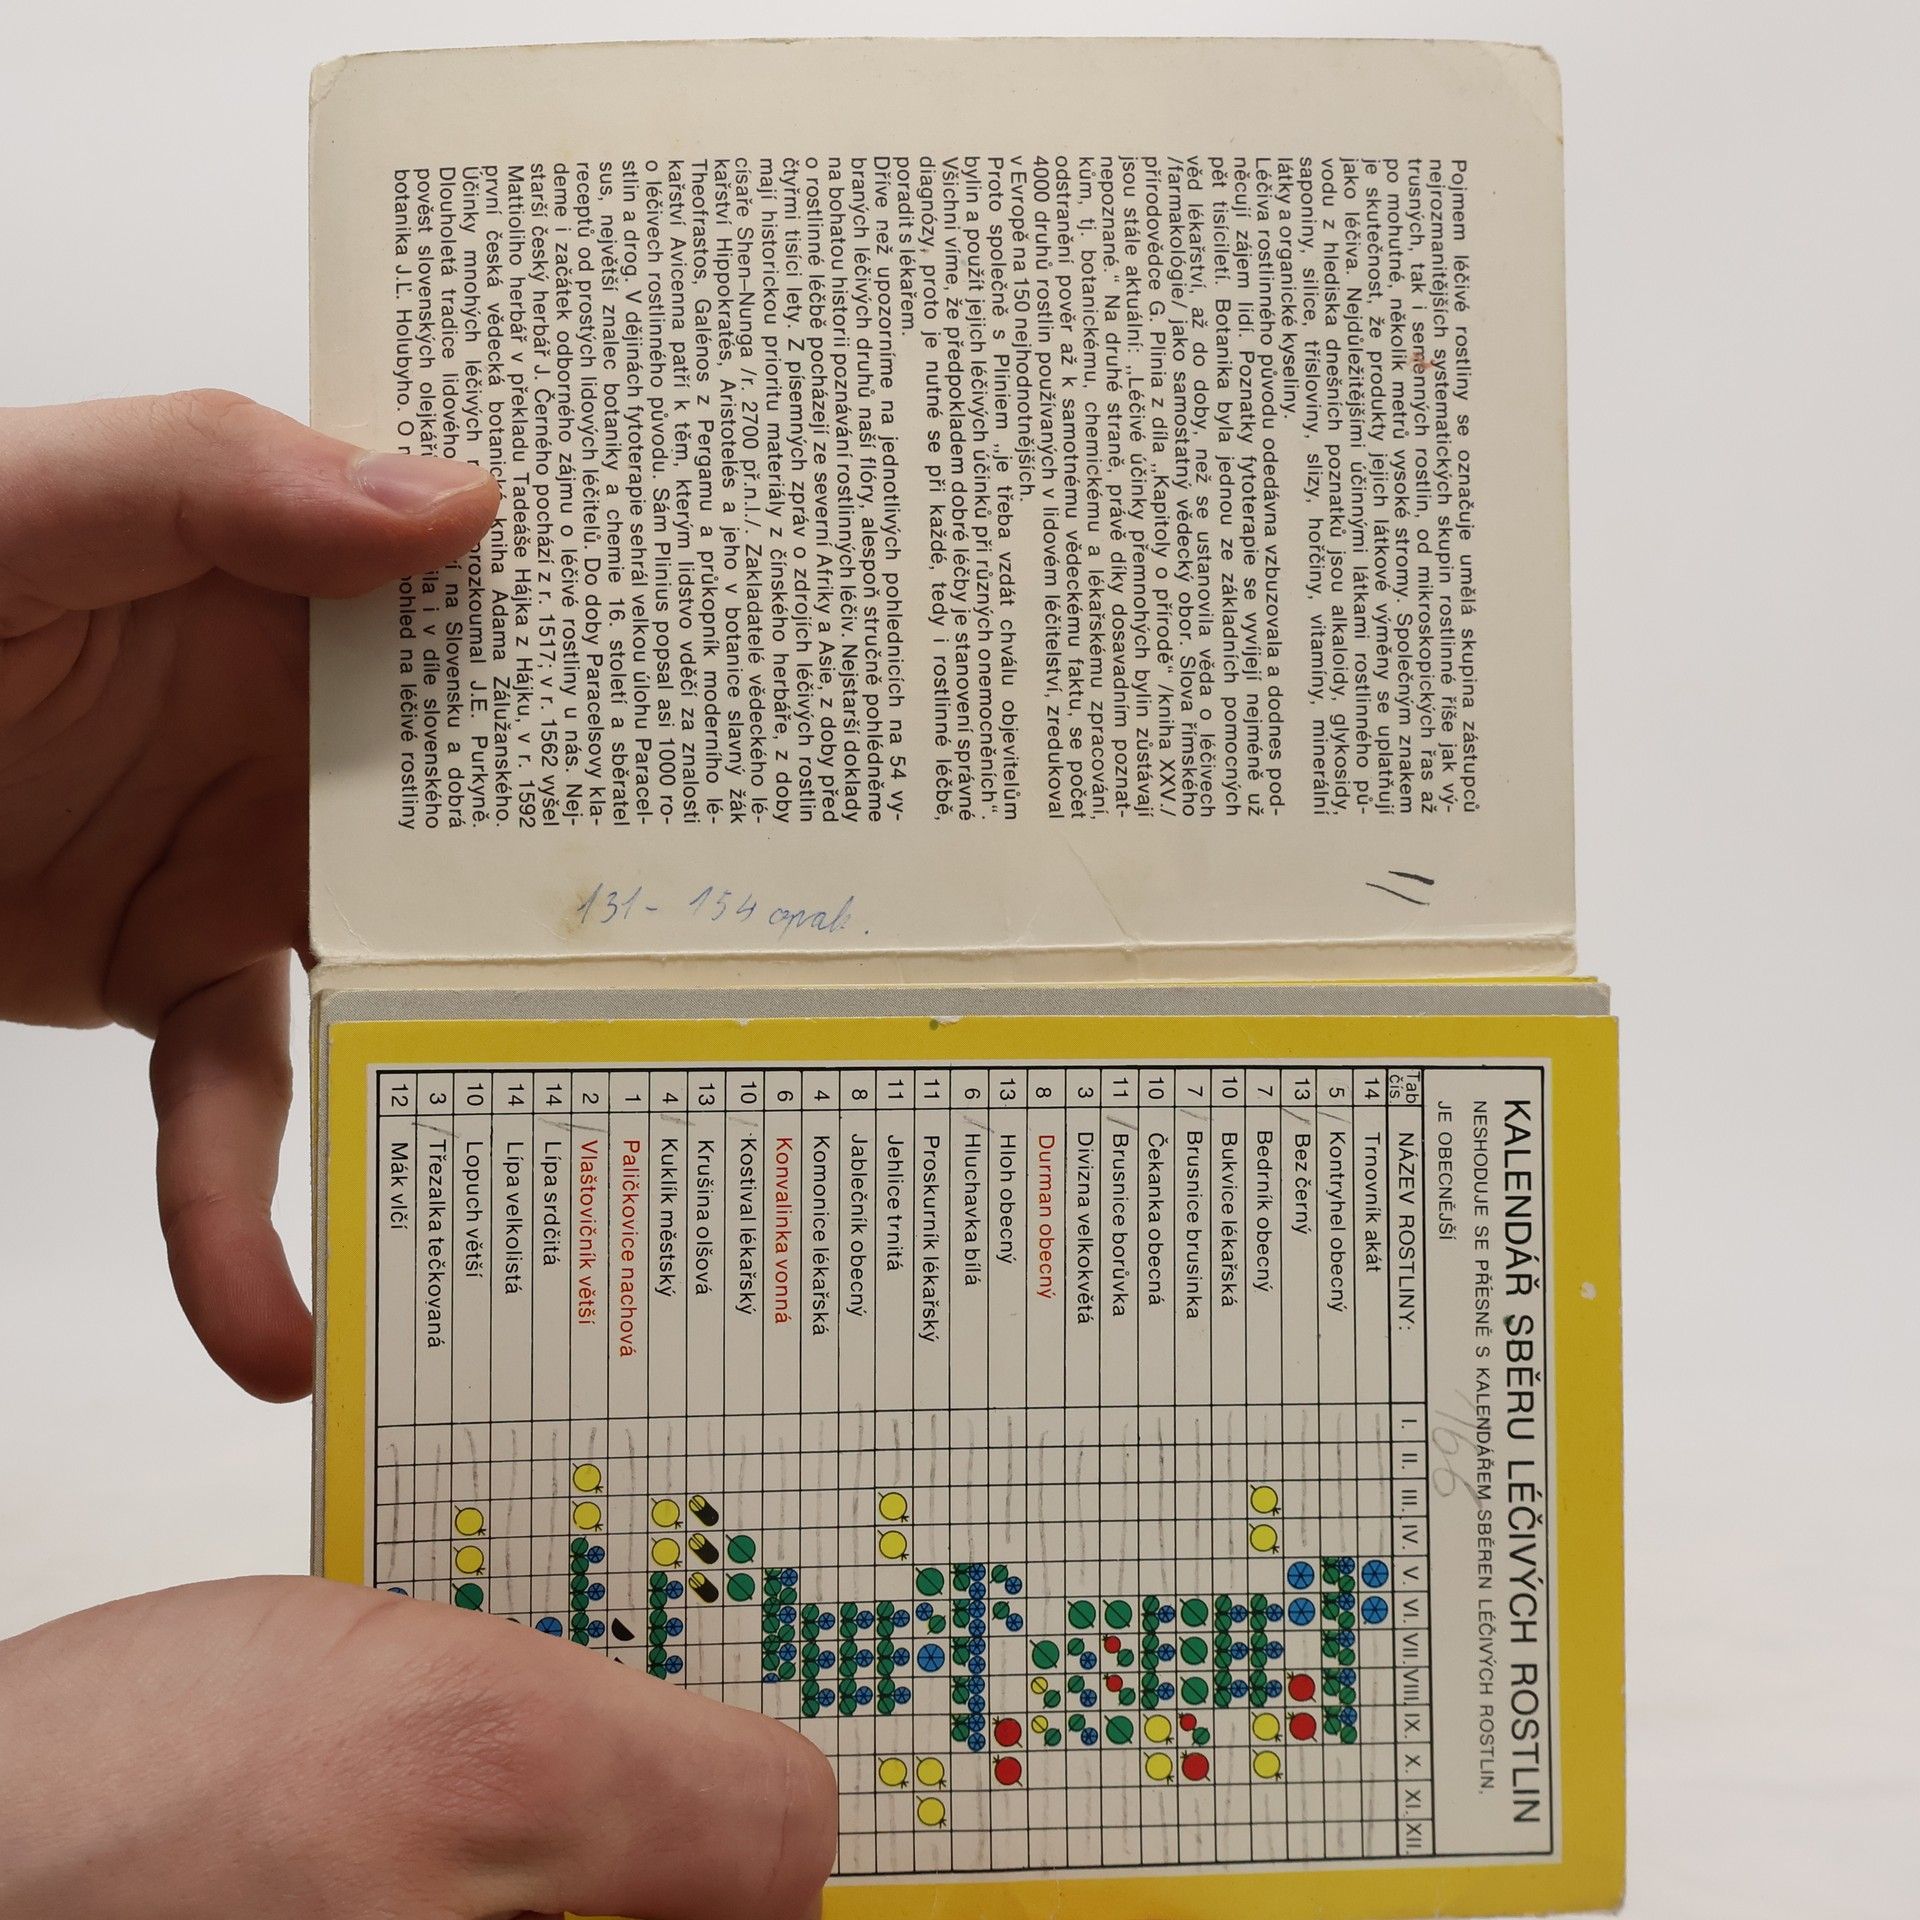 Pojmem léčivé rostliny se označuje umělá skupina zástupců
nejrozmanitějších systematických skupin rostlinné říše jak vý-
trusných, tak i semenných rostlin, od mikroskopických řas až
po mohutné, několik metrů vysoké stromy. Společným znakem
je skutečnost, že produkty jejich látkové výměny se uplatňují
jako léčiva. Nejdůležitějšími účinnými látkami rostlinného pů-
vodu z hlediska dnešních poznatků jsou alkaloidy, glykosidy,
saponiny, silice, třísloviny, slizy, hořčiny, vitamíny, minerální
látky a organické kyseliny.
Léčiva rostlinného původu odedávna vzbuzovala a dodnes pod-
něcují zájem lidí. Poznatky fytoterapie se vyvíjejí nejméně už
pět tisíciletí. Botanika byla jednou ze základních pomocných
věd lékařství, až do doby, než se ustanovila věda o léčivech
/farmakológie/ jako samostatný vědecký obor. Slova římského
přírodovědce G. Plinia z díla „Kapitoly o přírodě“ /kniha XXV./
jsou stále aktuální: „Léčivé účinky přemnohých bylin zůstávají
nepoznané.“ Na druhé straně, právě díky dosavadním poznat-
kům, tj. botanickému, chemickému a lékařskému zpracování,
odstranění pověr až k samotnému vědeckému faktu, se počet
4000 druhů rostlin používaných v lidovém léčitelství, zredukoval
v Evropě na 150 nejhodnotnějších.
Proto společně s Pliniem „je třeba vzdát chválu objevitelům
bylin a použít jejich léčivých účinků při různých onemocněních“.
Všichni víme, že předpokladem dobré léčby je stanovení správné
diagnózy, proto je nutné se při každé, tedy i rostlinné léčbě,
poradit s lékařem.
Dříve než upozorníme na jednotlivých pohlednicích na 54 vy-
braných léčivých druhů naší flóry, alespoň stručně pohlédněme
na bohatou historii poznávání rostlinných léčiv. Nejstarší doklady
o rostlinné léčbě pocházejí ze severní Afriky a Asie, z doby před
čtyřmi tisíci lety. Z písemných zpráv o zdrojích léčivých rostlin
mají historickou prioritu materiály z čínského herbáře, z doby
císaře Shen–Nunga /r. 2700 př.n.l./. Zakladatelé vědeckého lé-
kařství Hippokratés, Aristotelés a jeho v botanice slavný žák
Theofrastos, Galénos z Pergamu a průkopník moderního lé-
kařství Avicenna patří k těm, kterým lidstvo vděčí za znalosti
o léčivech rostlinného původu. Sám Plinius popsal asi 1000 ro-
stlin a drog. V dějinách fytoterapie sehrál velkou úlohu Paracel-
sus, největší znalec botaniky a chemie 16. století a sběratel
receptů od prostých lidových léčitelů. Do doby Paracelsovy kla-
deme i začátek odborného zájmu o léčivé rostliny u nás. Nej-
starší český herbář J. Černého pochází z r. 1517; v r. 1562 vyšel
Mattioliho herbář v překladu Tadeáše Hájka z Hájku, v r. 1592
první česká vědecká botanická kniha Adama Zálužanského.
Účinky mnohých léčivých prozkoumal J.E. Purkyně.
Dlouholetá tradice lidového na Slovensku a dobrá
pověst slovenských olejkářů i v díle slovenského
botanika J.Ľ. Holubyho. O pohled na léčivé rostliny
1/
131 - 154 opak.
KALENDÁŘ SBĚRU LÉČIVÝCH ROSTLIN
NESHODUJE SE PŘESNĚ S KALENDÁŘEM SBĚREN LÉČIVÝCH ROSTLIN,
JE OBECNĚJŠÍ
Tab. čís. NÁZEV ROSTLINY: I. II. III. IV. V. VI. VII. VIII. IX. X. XI. XII.
14 Trnovník akát
5 Kontryhel obecný
13 Bez černý
7 Bedrník obecný
10 Bukvice lékařská
7 Brusnice brusinka
10 Čekanka obecná
11 Brusnice borůvka
3 Divizna velkokvětá
8 Durman obecný
13 Hloh obecný
6 Hluchavka bílá
11 Proskurník lékařský
11 Jehlice trnitá
8 Jablečník obecný
4 Komonice lékařská
6 Konvalinka vonná
10 Kostival lékařský
13 Krušina olšová
4 Kuklík městský
1 Paličkovice nachová
2 Vlaštovičník větší
14 Lípa srdčitá
14 Lípa velkolistá
10 Lopuch větší
3 Třezalka tečkovaná
12 Mák vlčí